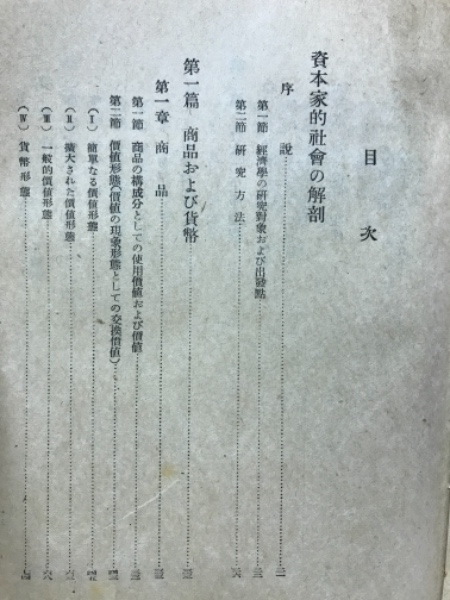 目次
資本家的社會の解剖
序說
第一節 經濟學の研究對象および出發點
第二節 研究方法
第一篇 商品および貨幣
第一章 商品
第一節 商品の構成分としての使用價値および價値
第二節 價値形態(價値の現象形態としての交換價値)
(I) 簡單なる價値形態
(II) 擴大された價値形態
(III) 一般的價値形態
(IV) 貨幣形態